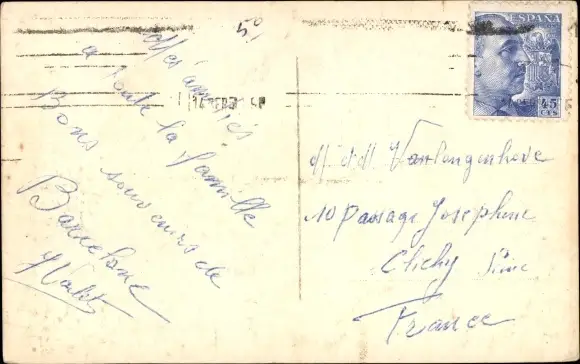 50
Mes amitiés
a toute la famille
Bons souvenirs de
Barcelone
ESPAÑA
45
CTS
M. et M. Vantongenhove
10 Passage Josephine
Clichy Seine
France